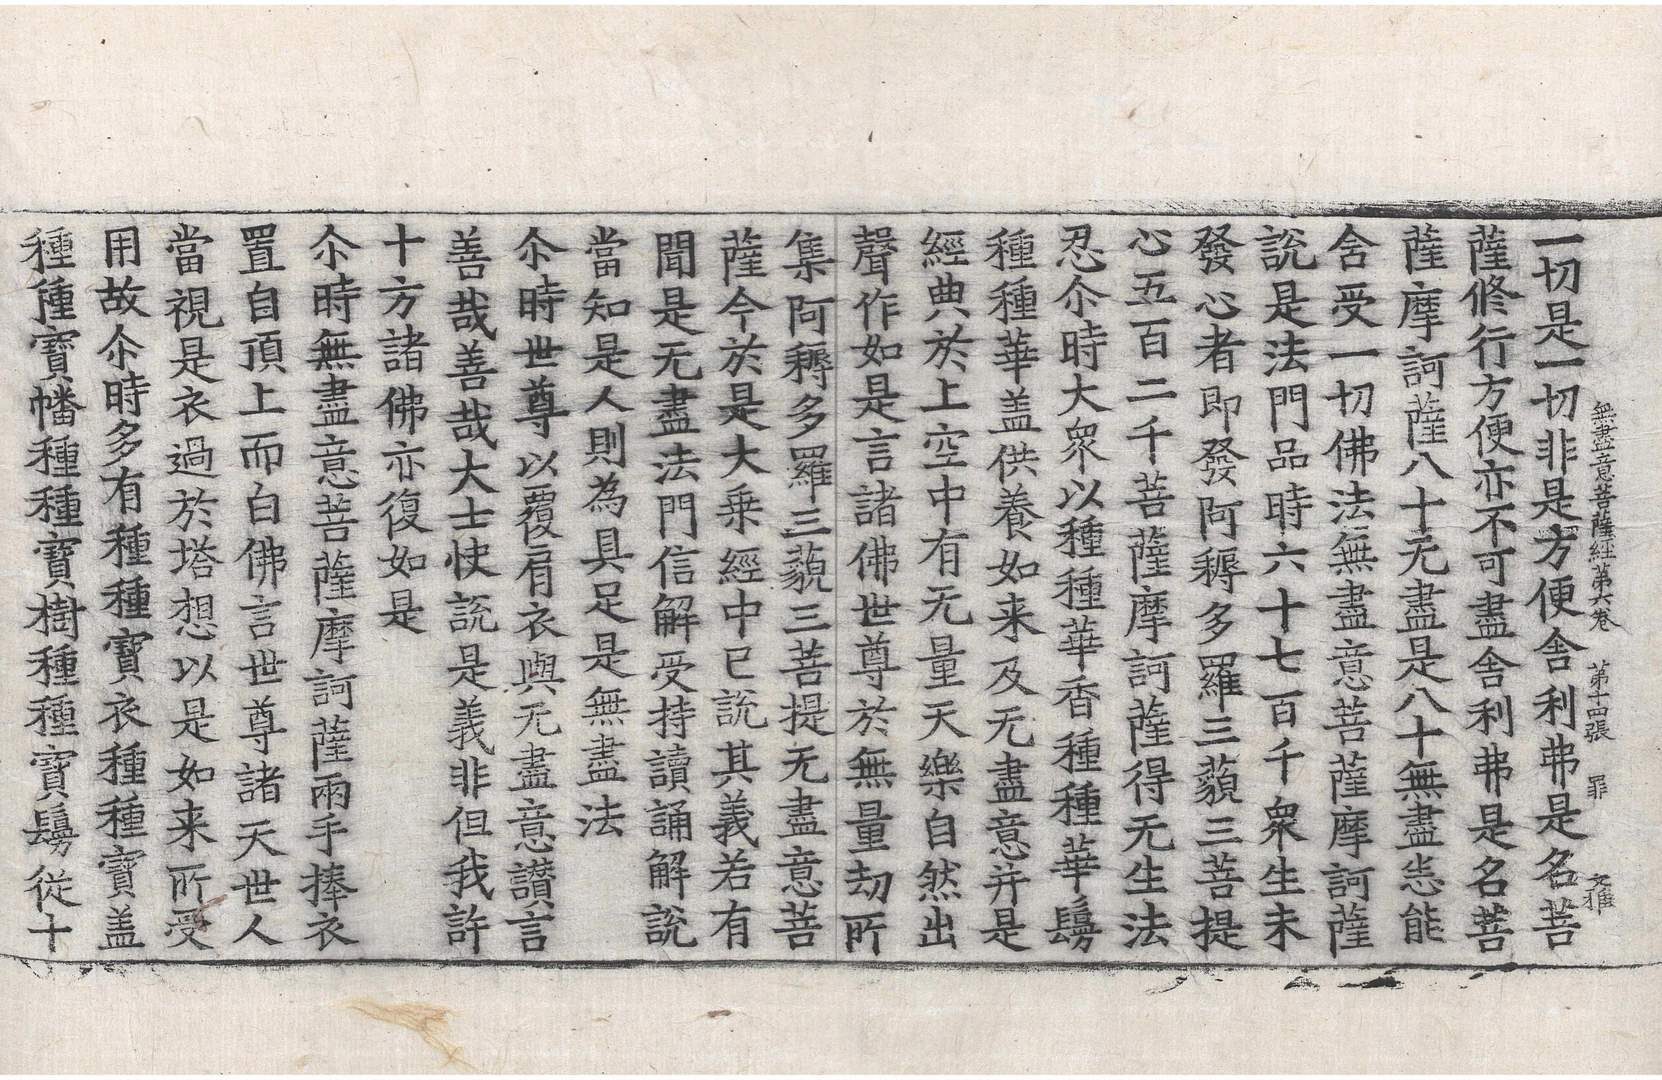 無盡意菩薩經第六卷 第十四張 罪
一切是一切非是方便舍利弗是名菩
薩修行方便亦不可盡舍利弗是名菩
薩摩訶薩八十无盡是八十無盡悉能
含受一切佛法無盡意菩薩摩訶薩
說是法門品時六十七百千衆生未
發心者即發阿耨多羅三藐三菩提
心五百二千菩薩摩訶薩得无生法
忍尒時大衆以種種華香種種華鬘
種種華盖供養如来及无盡意并是
經典於上空中有无量天樂自然出
聲作如是言諸佛世尊於無量劫所
集阿耨多羅三藐三菩提无盡意菩
薩今於是大乗經中已說其義若有
聞是无盡法門信解受持讀誦解說
當知是人則為具足是無盡法
尒時世尊以覆肩衣與无盡意讃言
善哉善哉大士快說是義非但我許
十方諸佛亦復如是
尒時無盡意菩薩摩訶薩兩手捧衣
置自頂上而白佛言世尊諸天世人
當視是衣過於塔想以是如来所受
用故尒時多有種種寶衣種種寶盖
種種寶幡種種寶樹種種寶鬘從十